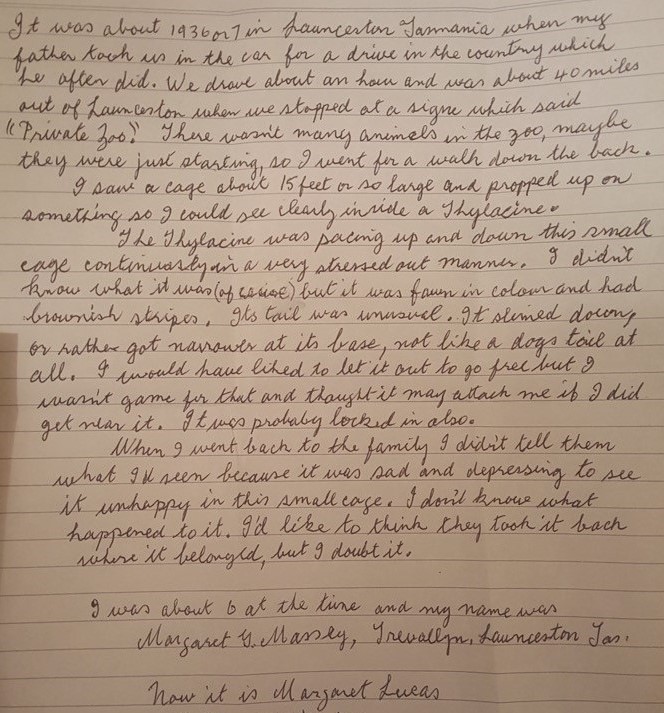 It was about 1936 or 7 in Launceston Tasmania when my
father took us in the car for a drive in the country which
he often did. We drove about an hour and was about 40 miles
out of Launceston when we stopped at a signe which said
"Private Zoo." There wasn't many animels in the zoo, maybe
they were just starting, so I went for a walk down the back.
I saw a cage about 15 feet or so large and propped up on
something so I could see clearly inside a Thylacine.
The Thylacine was pacing up and down this small
cage continuosty in a very stressed out manner. I didn't
know what it was (of cause) but it was fawn in colour and had
brownish stripes. Its tail was unusual. It slimed down,
or rather got narrower at its base, not like a dogs tail at
all. I would have liked to let it out to go free but I
wasn't game for that and thought it may attack me if I did
get near it. It was probaby locked in also.
When I went back to the family I didn't tell them
what I'd seen because it was sad and depressing to see
it unhappy in this small cage. I don't know what
happened to it. I'd like to think they took it back
where it belonged, but I doubt it.
I was about 6 at the time and my name was
Margaret G. Massey, Trevallyn, Launceston Tas.
Now it is Margaret Lucas